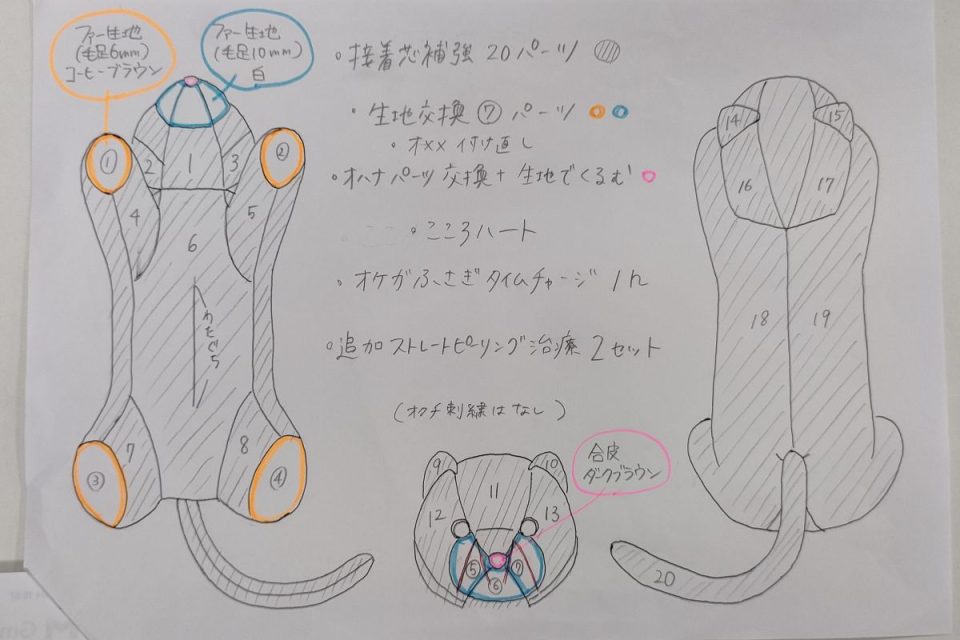 ファー生地
(毛足6mm)
コーヒーブラウン
ファー生地
(毛足10mm)
白
接着芯補強 20パーツ
生地交換⑦パーツ
オメメ付け直し
オハナパーツ交換+生地でくるむ
こころハート
オケガふさぎタイムチャージ 1h
追加ストレートピーリング治療 2セット
(オクチ刺繍はなし)
合皮
ダークブラウン
① 2 1 3 ②
4 5
6
わたぐち
7 8
③ ④
9 10
11
12 13
⑤ ⑥ ⑦
14 15
16 17
18 19
20